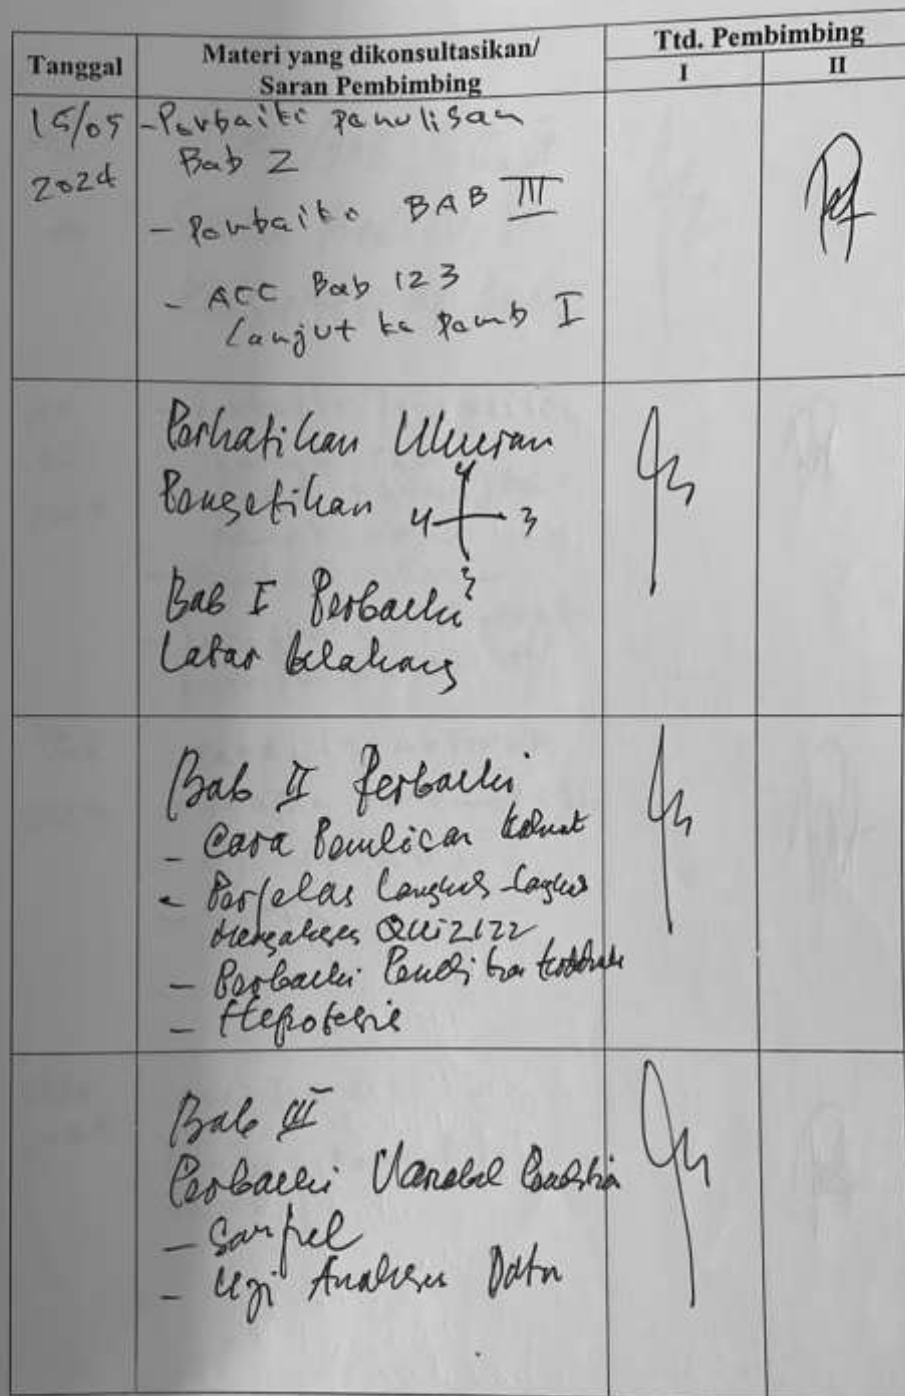 Tanggal
Materi yang dikonsultasikan/
Saran Pembimbing
Ttd. Pembimbing
I
II
15/05
2024
- Perbaiki penulisan
Bab 2
- Perbaiki BAB III
- ACC Bab 123
Lanjut ke Pemb I
Perhatikan Ukuran
Pengetikan
4
4 3
3
Bab I Perbaiki
Latar belakang
Bab II Perbaiki
- Cara Penulisan
- Perjelas Langkah-langkah
Mengakses QUIZIZZ
- Perbaiki
- Hepotesis
Bab III
Perbaiki Variabel Penelitian
- Sampel
- Uji Analisis Data